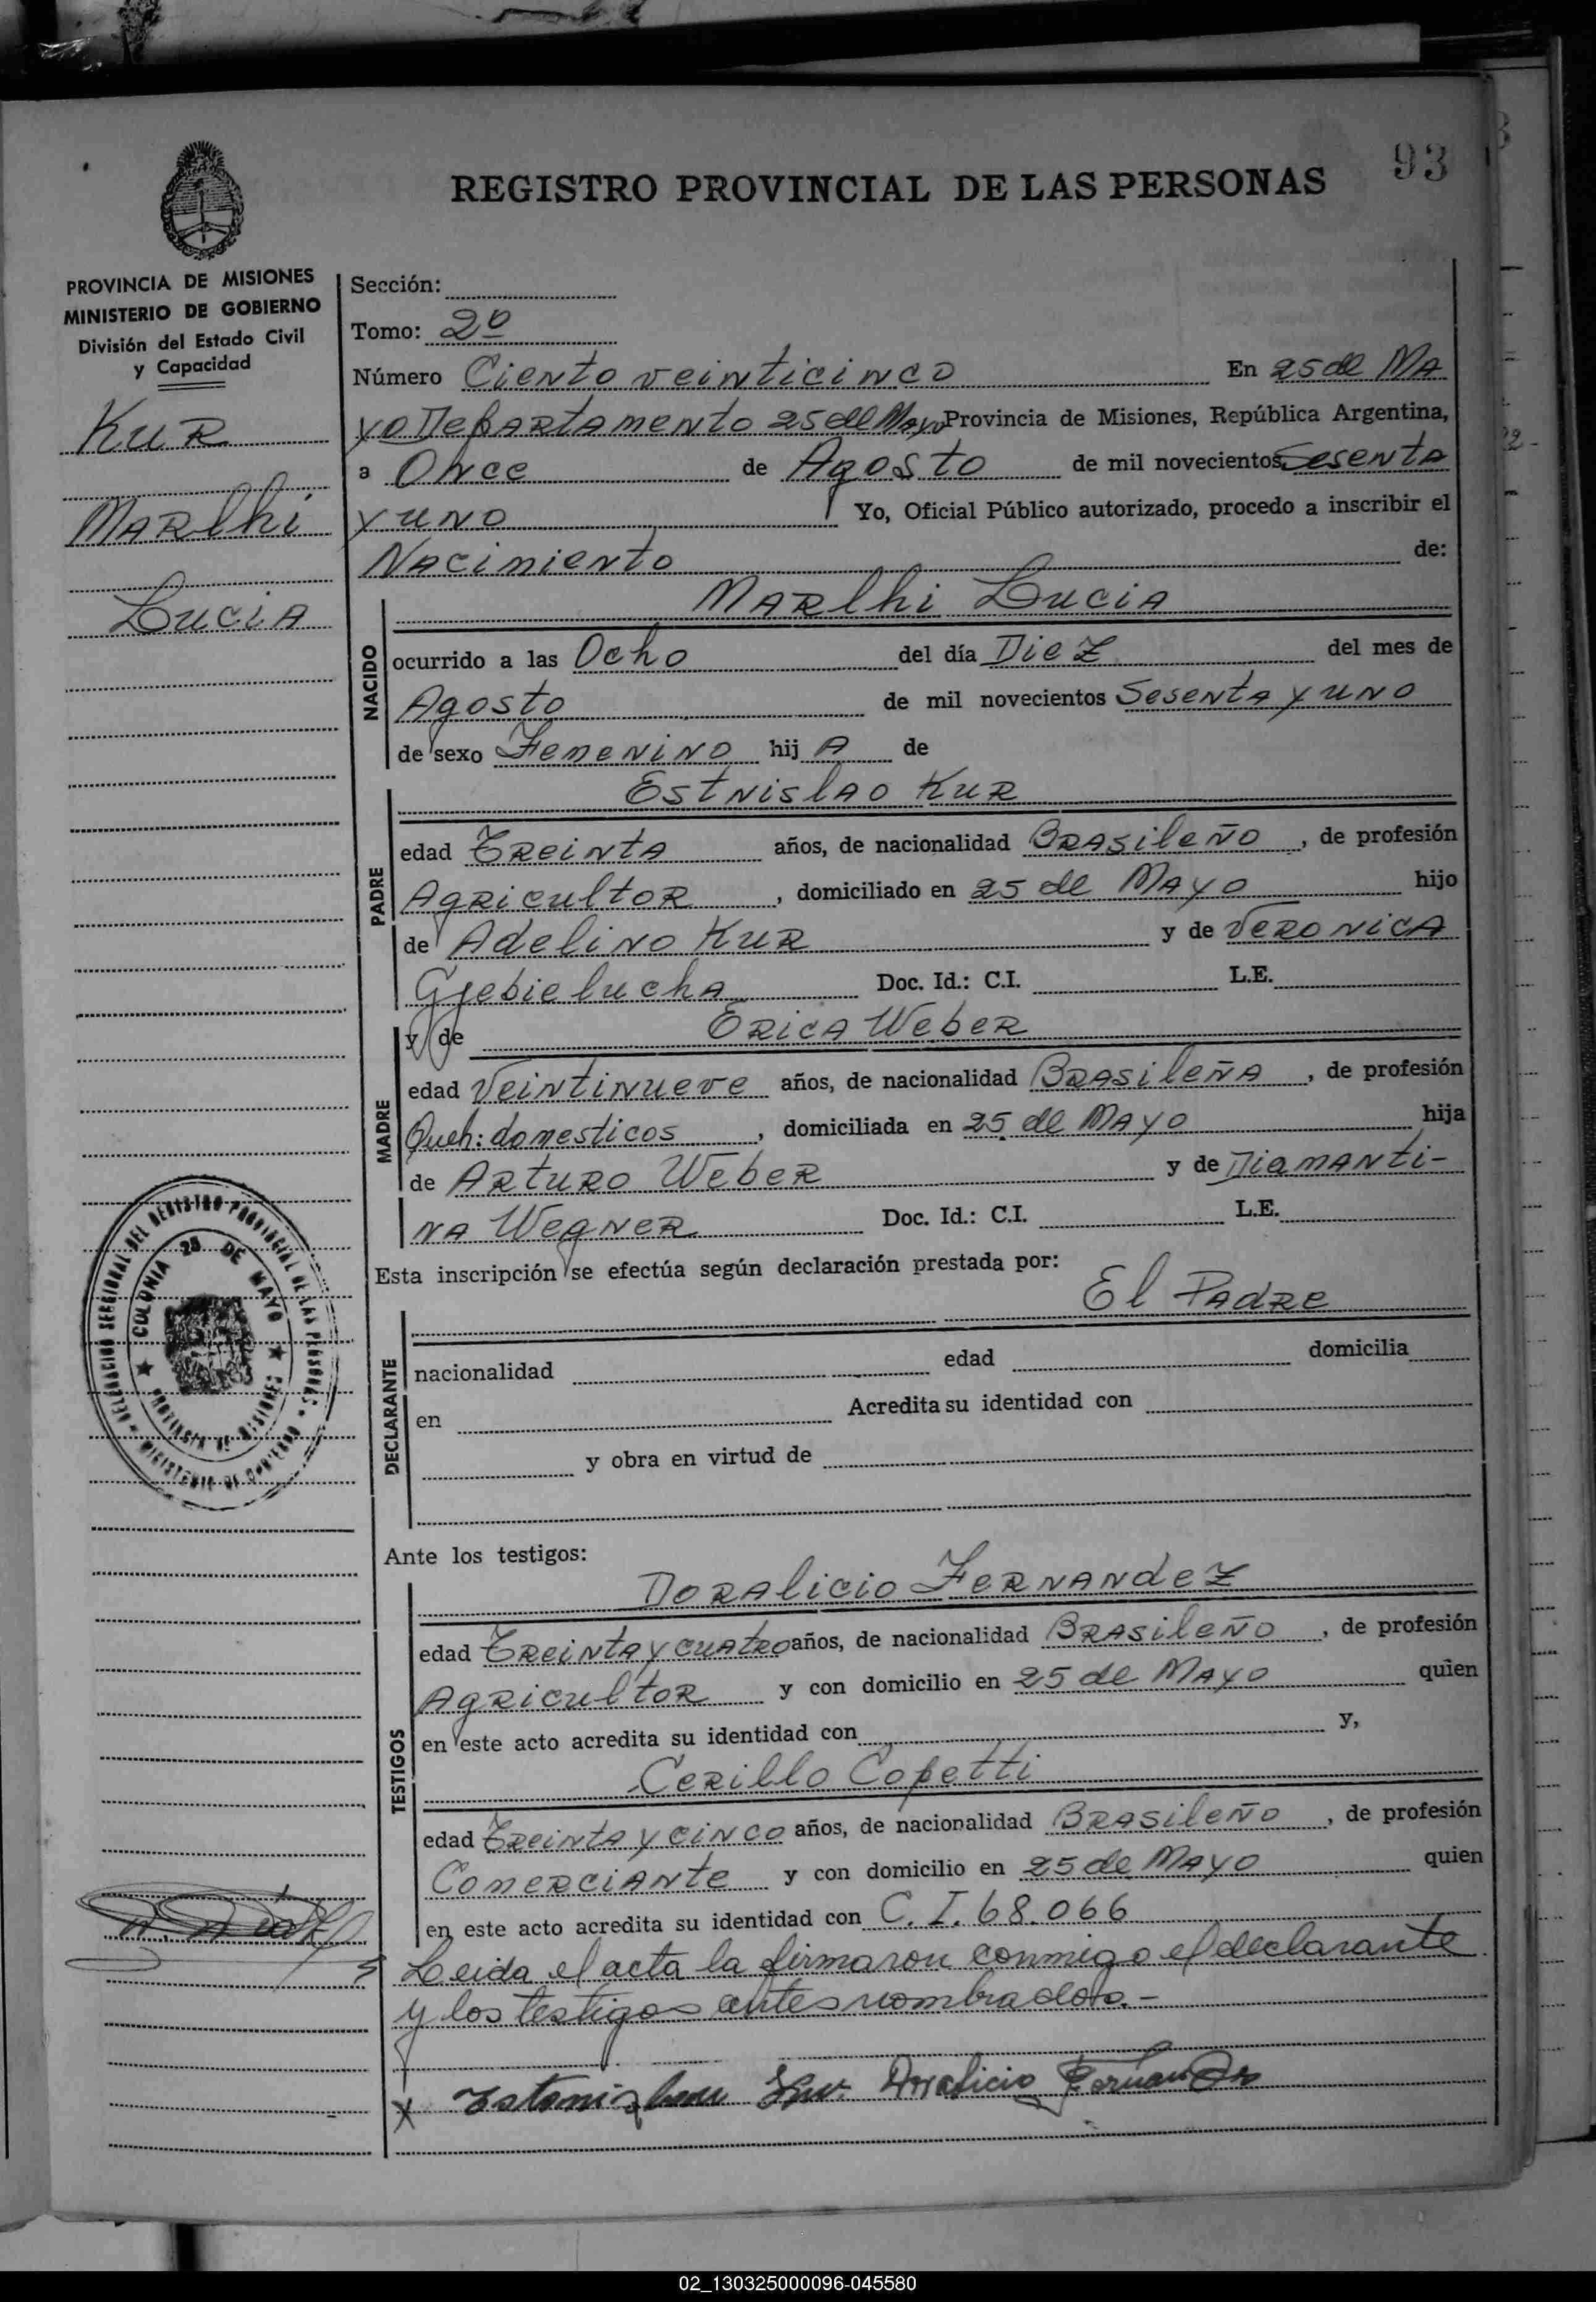 93
REGISTRO PROVINCIAL DE LAS PERSONAS
PROVINCIA DE MISIONES
MINISTERIO DE GOBIERNO
División del Estado Civil
y Capacidad
KUR
MARLhi
LUCIA
Sección:
Tomo: 2º
Número Ciento veinticinco En 25 de MA
YO DEPARTAMENTO 25 de MAYO Provincia de Misiones, República Argentina,
a Once de Agosto de mil novecientos Sesenta
y uno Yo, Oficial Público autorizado, procedo a inscribir el
Nacimiento de:
NACIDO
MARLhi LUCIA
ocurrido a las Ocho del día Diez del mes de
Agosto de mil novecientos Sesenta y uno
de sexo Femenino hij A de
PADRE
Estnislao Kur
edad Treinta años, de nacionalidad Brasileño, de profesión
Agricultor, domiciliado en 25 de Mayo hijo
de Adelino Kur y de Veronica
Gjebielucha Doc. Id.: C.I. L.E.
MADRE
y de Erica Weber
edad Veintinueve años, de nacionalidad Brasileña, de profesión
Queh: domesticos, domiciliada en 25 de Mayo hija
de Arturo Weber y de Diamanti-
na Wegner Doc. Id.: C.I. L.E.
Esta inscripción se efectúa según declaración prestada por:
El Padre
DECLARANTE
nacionalidad edad domicilia
en Acredita su identidad con
y obra en virtud de
DELEGACION SECCIONAL DEL REGISTRO PROVINCIAL DE LAS PERSONAS
COLONIA 25 DE MAYO
Ante los testigos:
TESTIGOS
Doralicio Fernandez
edad Treinta y cuatro años, de nacionalidad Brasileño, de profesión
Agricultor y con domicilio en 25 de Mayo quien
en este acto acredita su identidad con y,
Cerillo Copetti
edad Treinta y cinco años, de nacionalidad Brasileño, de profesión
Comerciante y con domicilio en 25 de Mayo quien
en este acto acredita su identidad con C. I. 68.066
Leida el acta la firmaron conmigo el declarante
y los testigos antes nombrados.-
x Doralicio Fernandes
02_130325000096-045580